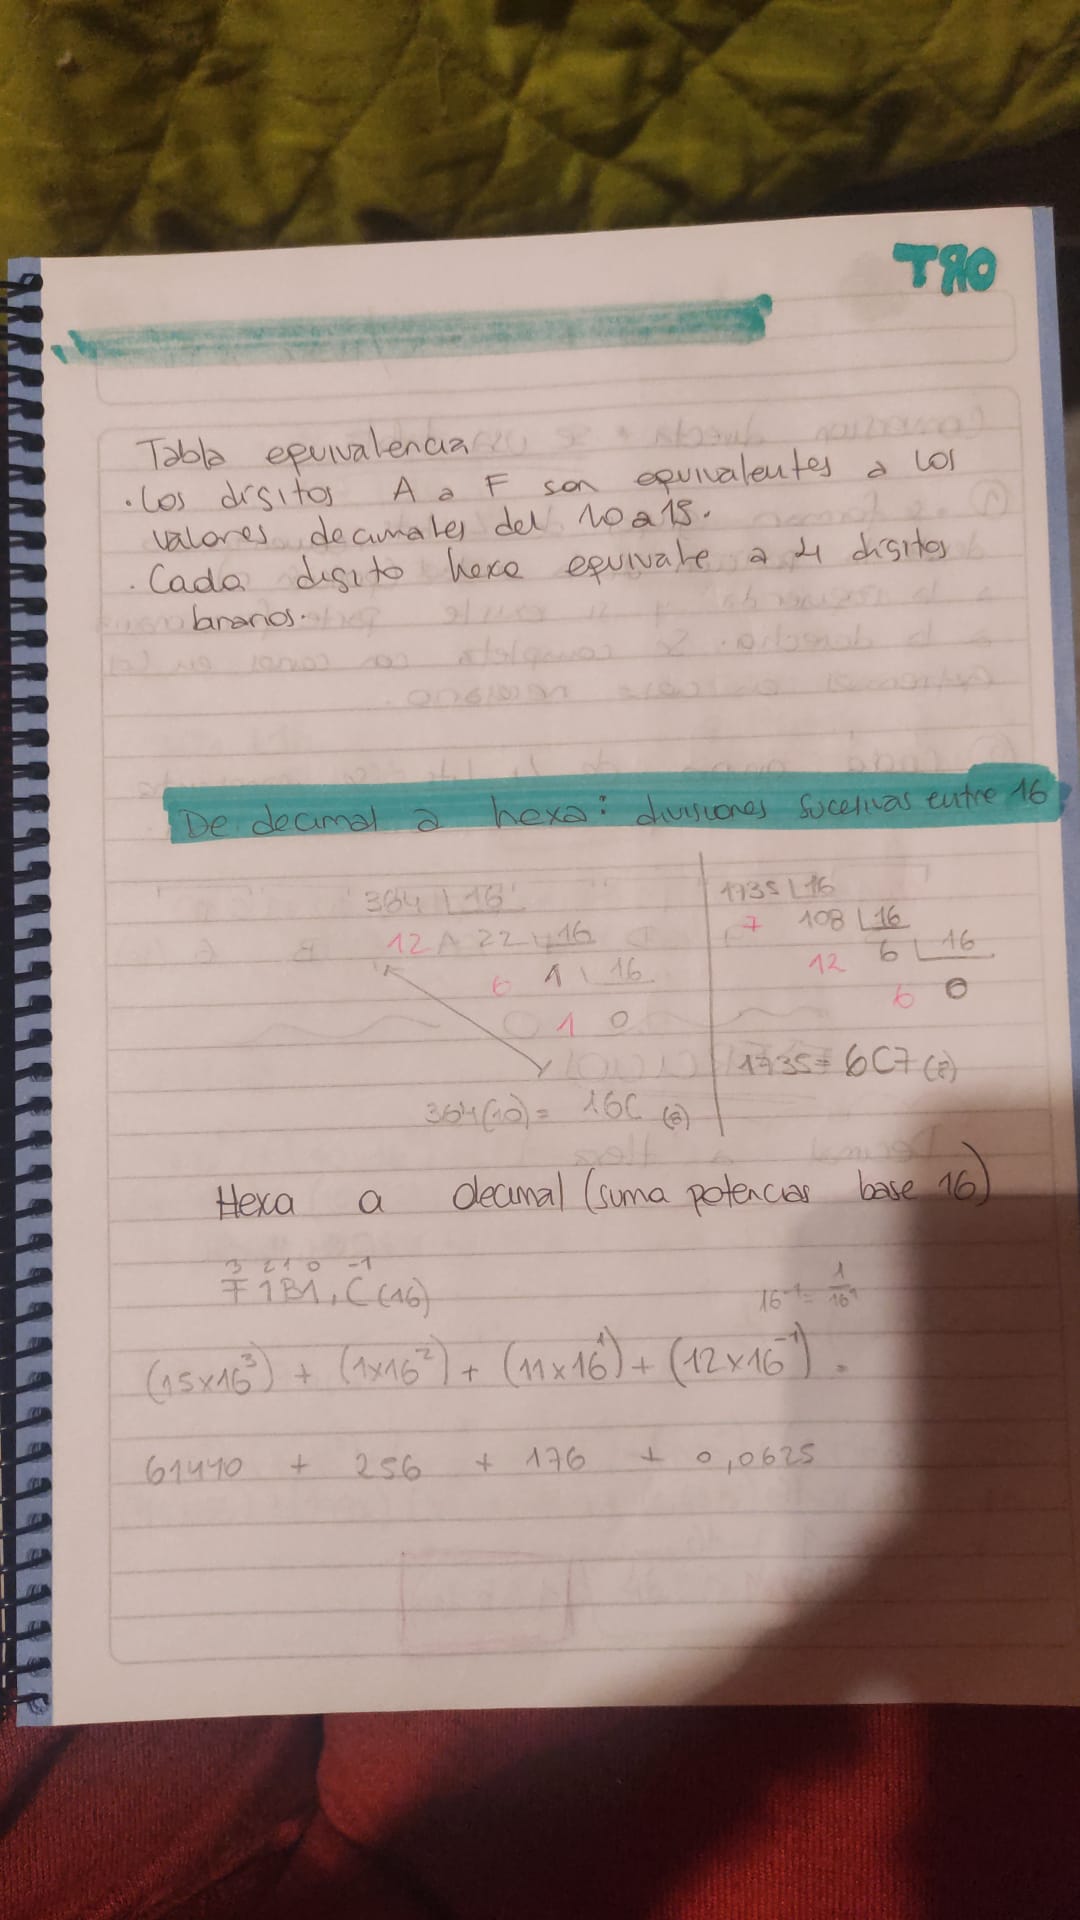 TRO
Tabla equivalencia
. Los digitos A a F son equivalentes a los
valores decimales del 10 a 15.
. Cada digito hexa equivale a 4 digitos
binarios.
De decimal a hexa: divisiones sucesivas entre 16
364 16
12 22 16
6 1 16
1 0
364(10) = 16C (8)
1735 16
7 108 16
12 6 16
6 0
1735 = 6C7 (8)
Hexa a decimal (suma potencias base 16)
3 2 1 0 -1
F1B1,C (16)
16⁻¹ = 1/16¹
(15x16³) + (1x16²) + (11x16¹) + (12x16⁻¹) =
61440 + 256 + 176 + 0,0625